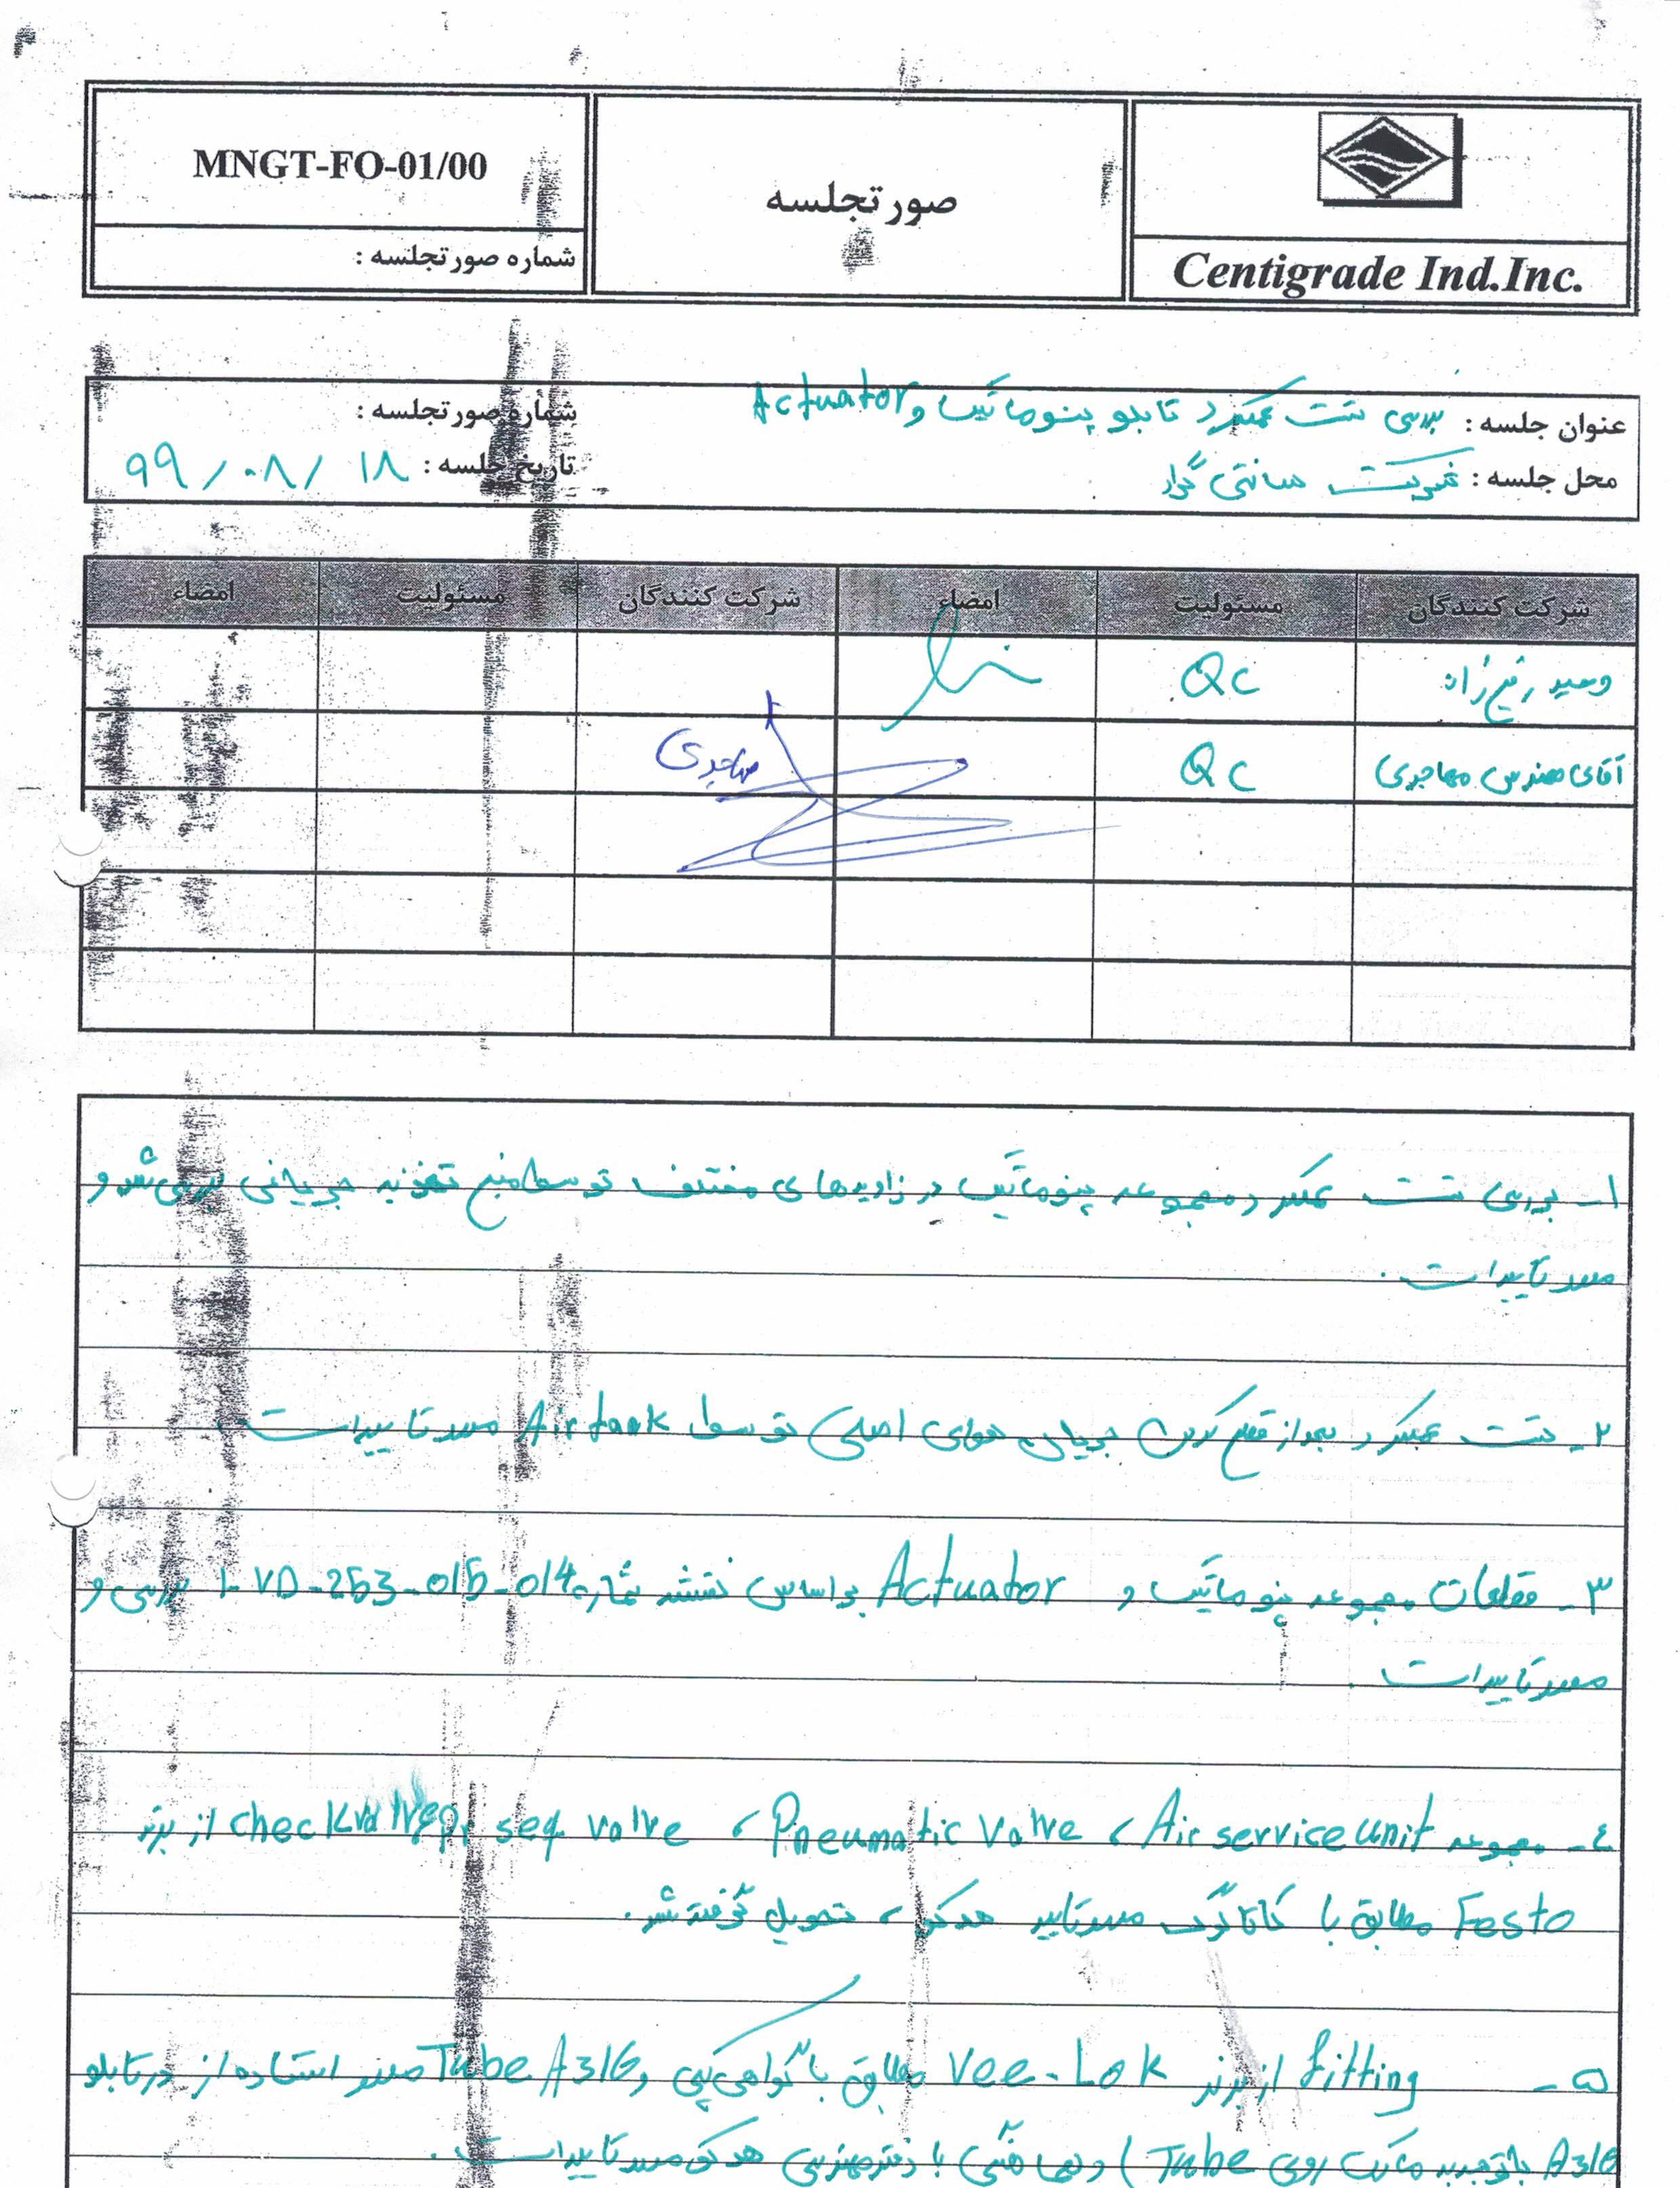 MNGT-FO-01/00
شماره صورتجلسه :
صورتجلسه
Centigrade Ind.Inc.
عنوان جلسه : بررسی تست عملکرد تابلو پنوماتیک و Actuator
شماره صورتجلسه :
محل جلسه : شرکت سانتی گراد
تاریخ جلسه : ۹۹/۰۸/۱۸
شرکت کنندگان مسئولیت امضاء شرکت کنندگان مسئولیت امضاء
وحید رفیع زاده QC
آقای مهندس مهاجری QC
مهاجری
۱- بررسی تست عملکرد مجموعه پنوماتیک در زاویه های مختلف توسط منبع تغذیه جریانی بررسی شد و
مورد تایید است .
۲- تست عملکرد بعد از قطع کردن جریان هوای اصلی توسط Air tank مورد تایید است .
۳- قطعات مجموعه پنوماتیک و Actuator بر اساس نقشه شماره VD-253-015-014 بررسی و
مورد تایید است .
٤- مجموعه Air service unit ، Pneumatic Valve ، seq valve و check valve از برند
Festo مطابق با کاتالوگ مورد تایید هدکو ، تحویل گرفته شد .
۵- fitting از برند Vee-Lok مطابق با گواهی کپی و Tube A316 مورد استفاده از در تابلو
A316 با توجه به مارک روی Tube ) و هماهنگی با دفتر مهندسی هدکو مورد تایید است .